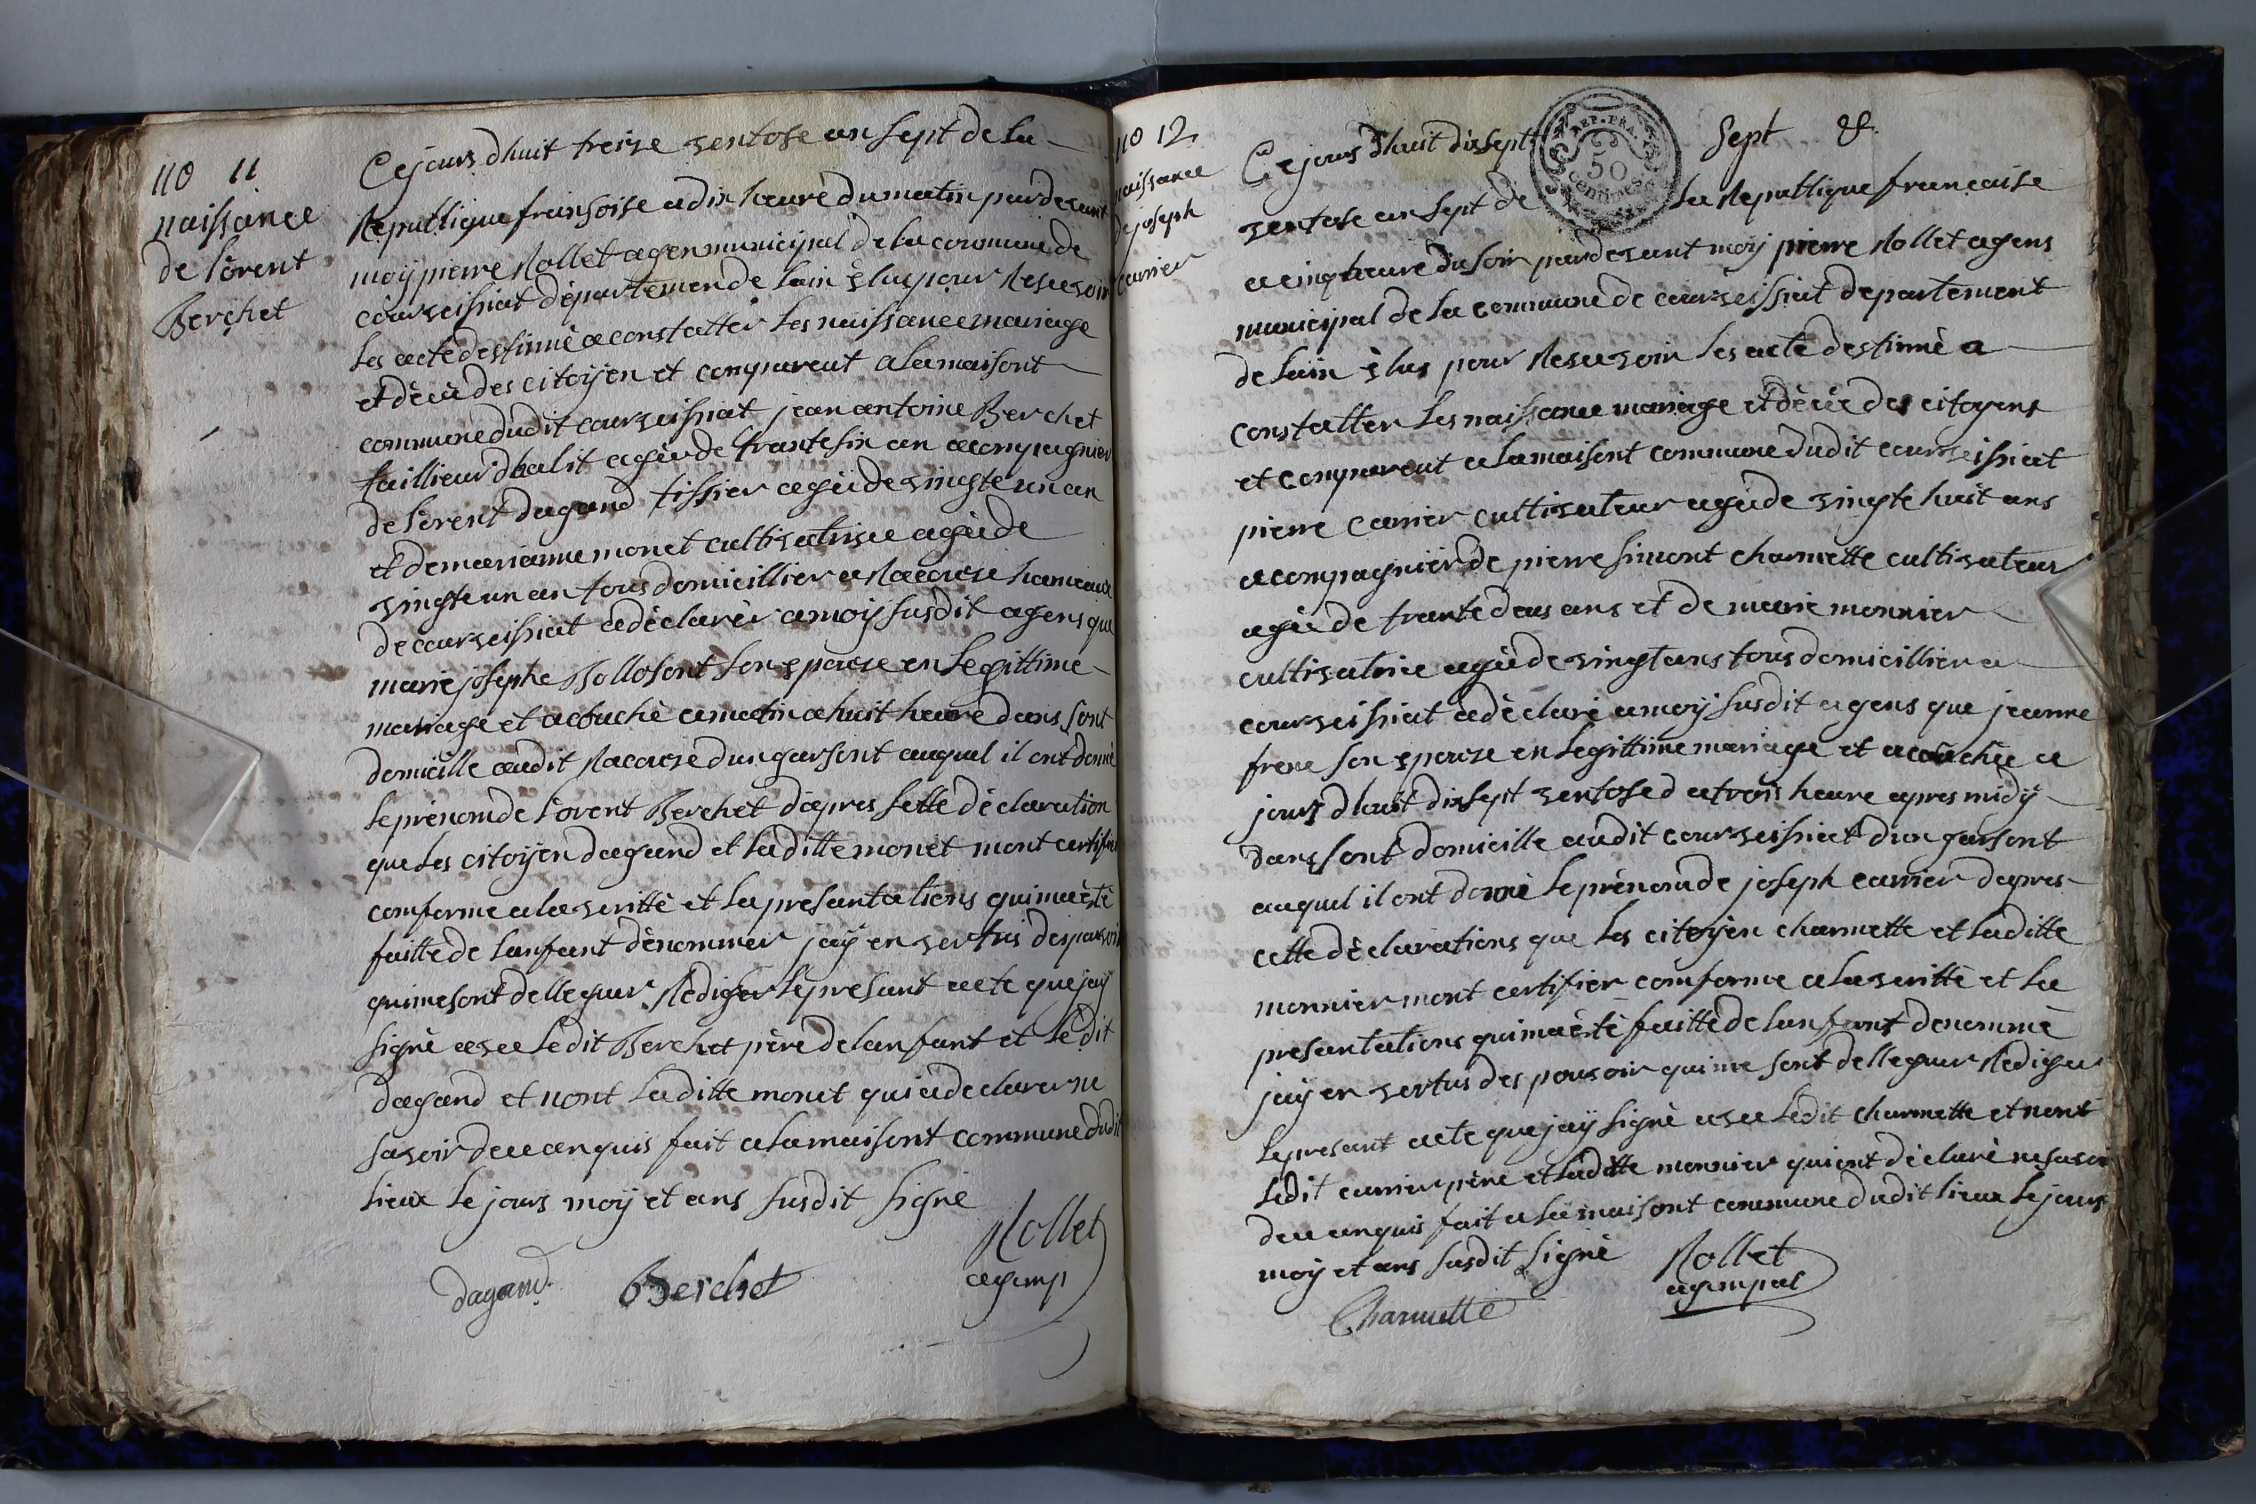 no 11
naissance
de lorent
Berchet
Ce jours dhuit treize ventose an sept de la
Republique fransoise a dix heure du matin par devant
moÿ pierre Rollet agen municipal de la commune de
courveissiat departemen de lain élus pour Resevoir
les acte destinné a constatter les naissance mariage
et décè des citoÿen et comparent a la maisont
commune dudit courveissiat jean antoine Berchet
taillieur dhabit agée de trante six an acompagnier
de lorent dagand tissier agée de vingte un an
et de marianne monet cultivatrice agée de
vingte un an tous domicillier a Racouse hameaux
de courveissiat a déclarér a moÿ susdit agens que
marie josephe Bollosont son epouse en legittime
mariage et acouché a matin a huit heure dans sont
domicille audit Racouse dun garsont auquel il ont donné
le prénom de lorent Berchet dapres sette déclaration
que les citoÿen dagand et la ditte monet mont certifié
comforme a la veritté et la presantations qui ma été
faitte de lanfant dénommer jaÿ en vertus des pouvoir
qui me sont delleguer Rediger le presant acte que jaÿ
signé avec ledit Berchet père de lanfant et ledit
dagand et nont la ditte monet qui a declarer ne
savoir de ce anquis fait a la maisont commune dudit
lieux le jours moÿ et ans susdit signe
Rollet
agen mp
dagand Berchet
no 12
naissance
de joseph
carrier
Sept &.
REP. FRA.
50
centimes
Ce jours dhuit dix sept
ventose an sept de la Republique francaise
a cinq heure du soir par devant moÿ pierre Rollet agens
municipal de la commune de courveissiat departement
de lain élus pour Resevoir les acte destinné a
constatter les naissance mariage et décée des citoyens
et comparent a la maisont commune dudit courveissiat
pierre carrier cultivateur agée de vingte huit ans
acompagniér de pierre simont charmette cultivateur
agée de trante deus ans et de marie monnier
cultivatrice agée de vingt ans tous domicillier a
courveissiat a déclaré a moÿ susdit agens que jeanne
frene son epouse en legittime mariage et acouchée a
jours dhuit dix sept ventose d a trois heure apres midÿ
dans sont domicille audit courveissiat dun garsont
auquel il ont donné le prénom de joseph carrier dapres
cette déclarations que les citoÿén charmette et la ditte
monnier mont certifiér comforme a la veritté et la
presantations qui ma été faitte de lanfant denommé
jaÿ en vertus des pouvoir qui me sont delleguer Rediger
le presant acte que jaÿ signé avec ledit charmette et nont
ledit carrier père et la ditte monnier qui ont déclaré ne savoir
de ce anquis fait a la maisont commune dudit lieux le jours
moÿ et ans susdit signé
Rollet
agen mpal
Charmette